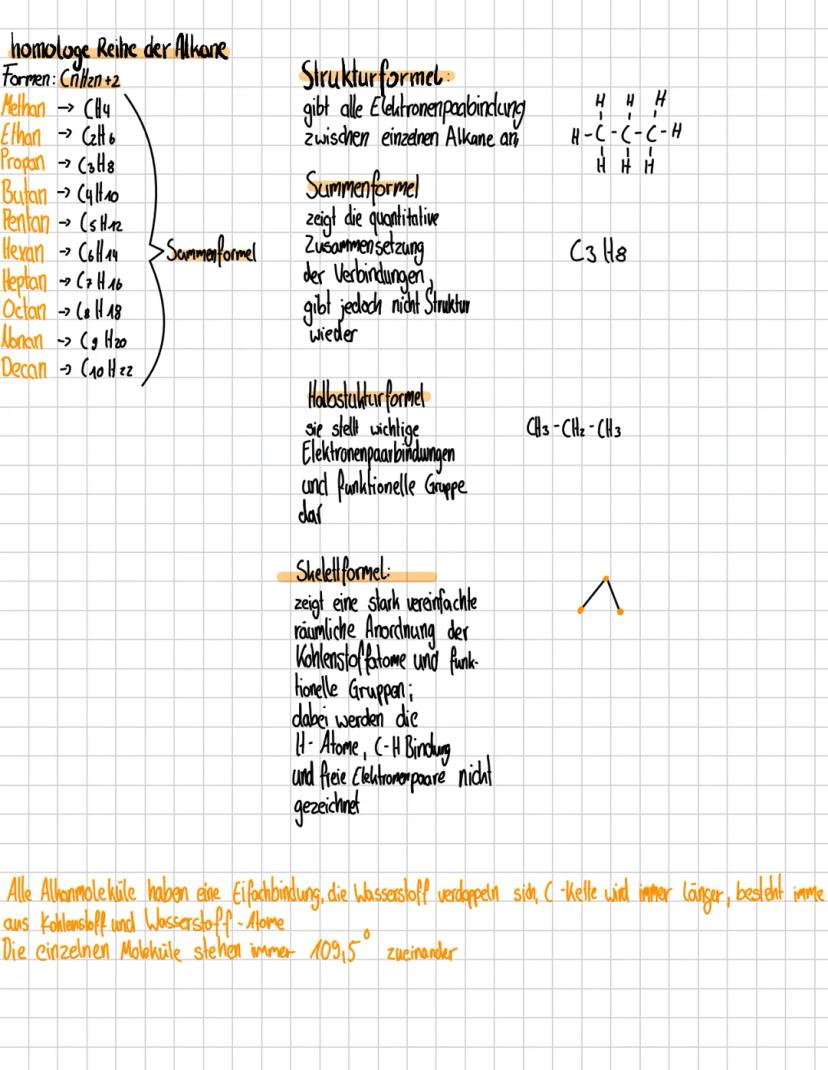 homologe Reihe der Alkane
Formen: CnH2n+2
Methan → CH4
Ethan → C2H6
Propan → C3H8
Butan → C4H10
Pentan → C5H12
Hexan → C6H14
Heptan → C7H16
Octan → C8H18
Nonan → C9H20
Decan → C10H22
Summenformel
Strukturformel:
gibt alle Elektronenpaabindung
zwischen einzelnen Alkane an,
H H H
H-C-C-C-H
H H H
Summenformel
zeigt die quantitative
Zusammensetzung
der Verbindungen,
gibt jedoch nicht Struktur
wieder
C3H8
Halbstukturformel
sie stellt wichtige
Elektronenpaarbindungen
und funktionelle Gruppe
dar
CH3-CH2-CH3
Skelettformel:
zeigt eine stark vereinfachte
räumliche Anordnung der
Kohlenstoffatome und funk-
tionelle Gruppen;
dabei werden die
H-Atome, C-H Bindung
und freie Elektronenpaare nicht
gezeichnet
Alle Alkanmoleküle haben eine Eifachbindung, die Wasserstoff verdoppeln sich, C-Kette wird immer länger, besteht imme
aus Kohlenstoff und Wasserstoff-Atome
Die einzelnen Moleküle stehen immer 109,5° zueinander